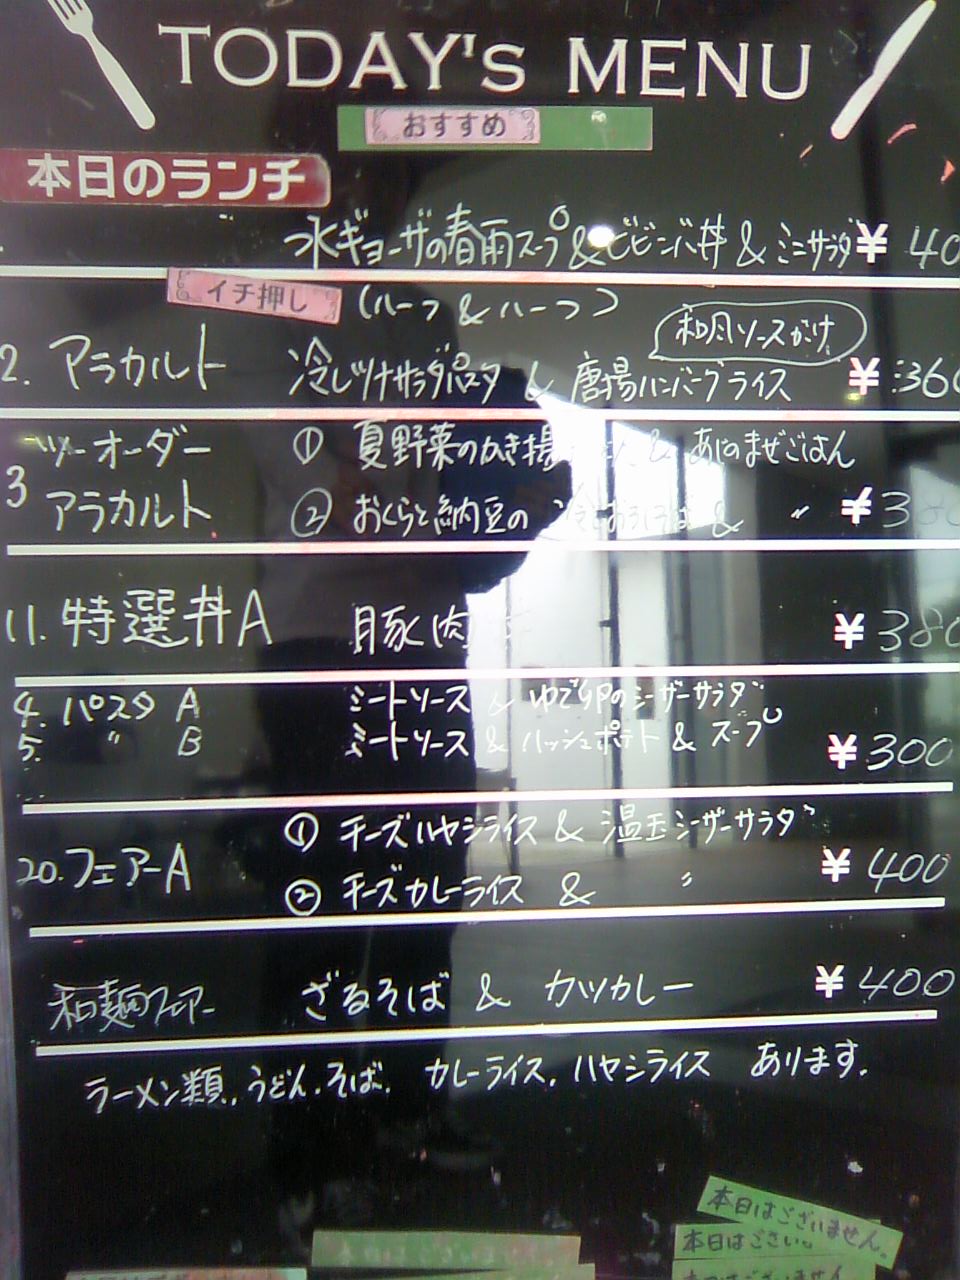 TODAY'S MENU
おすすめ
本日のランチ
水ギョーザの春雨スープ&ビビンバ丼 & ミニサラダ ¥ 40
イチ押し (ハーフ & ハーフ)
和風ソースがけ
2. アラカルト 冷しツナサラダパスタ & 唐揚ハンバーグライス ¥ 360
ツーオーダー ① 夏野菜のかき揚 & あじのまぜごはん
3 アラカルト ② おくらと納豆の 冷しおろしそば & 〃 ¥ 380
11. 特選丼A 豚肉 ¥ 380
4. パスタ A ミートソース & ゆで卵のシーザーサラダ
5. 〃 B ミートソース & ハッシュポテト & スープ ¥ 300
① チーズハヤシライス & 温玉シーザーサラダ
20. フェアーA ¥ 400
② チーズカレーライス & 〃
和麺フェアー ざるそば & カツカレー ¥ 400
ラーメン類, うどん, そば, カレーライス, ハヤシライス あります.
本日はございません。
本日はござい